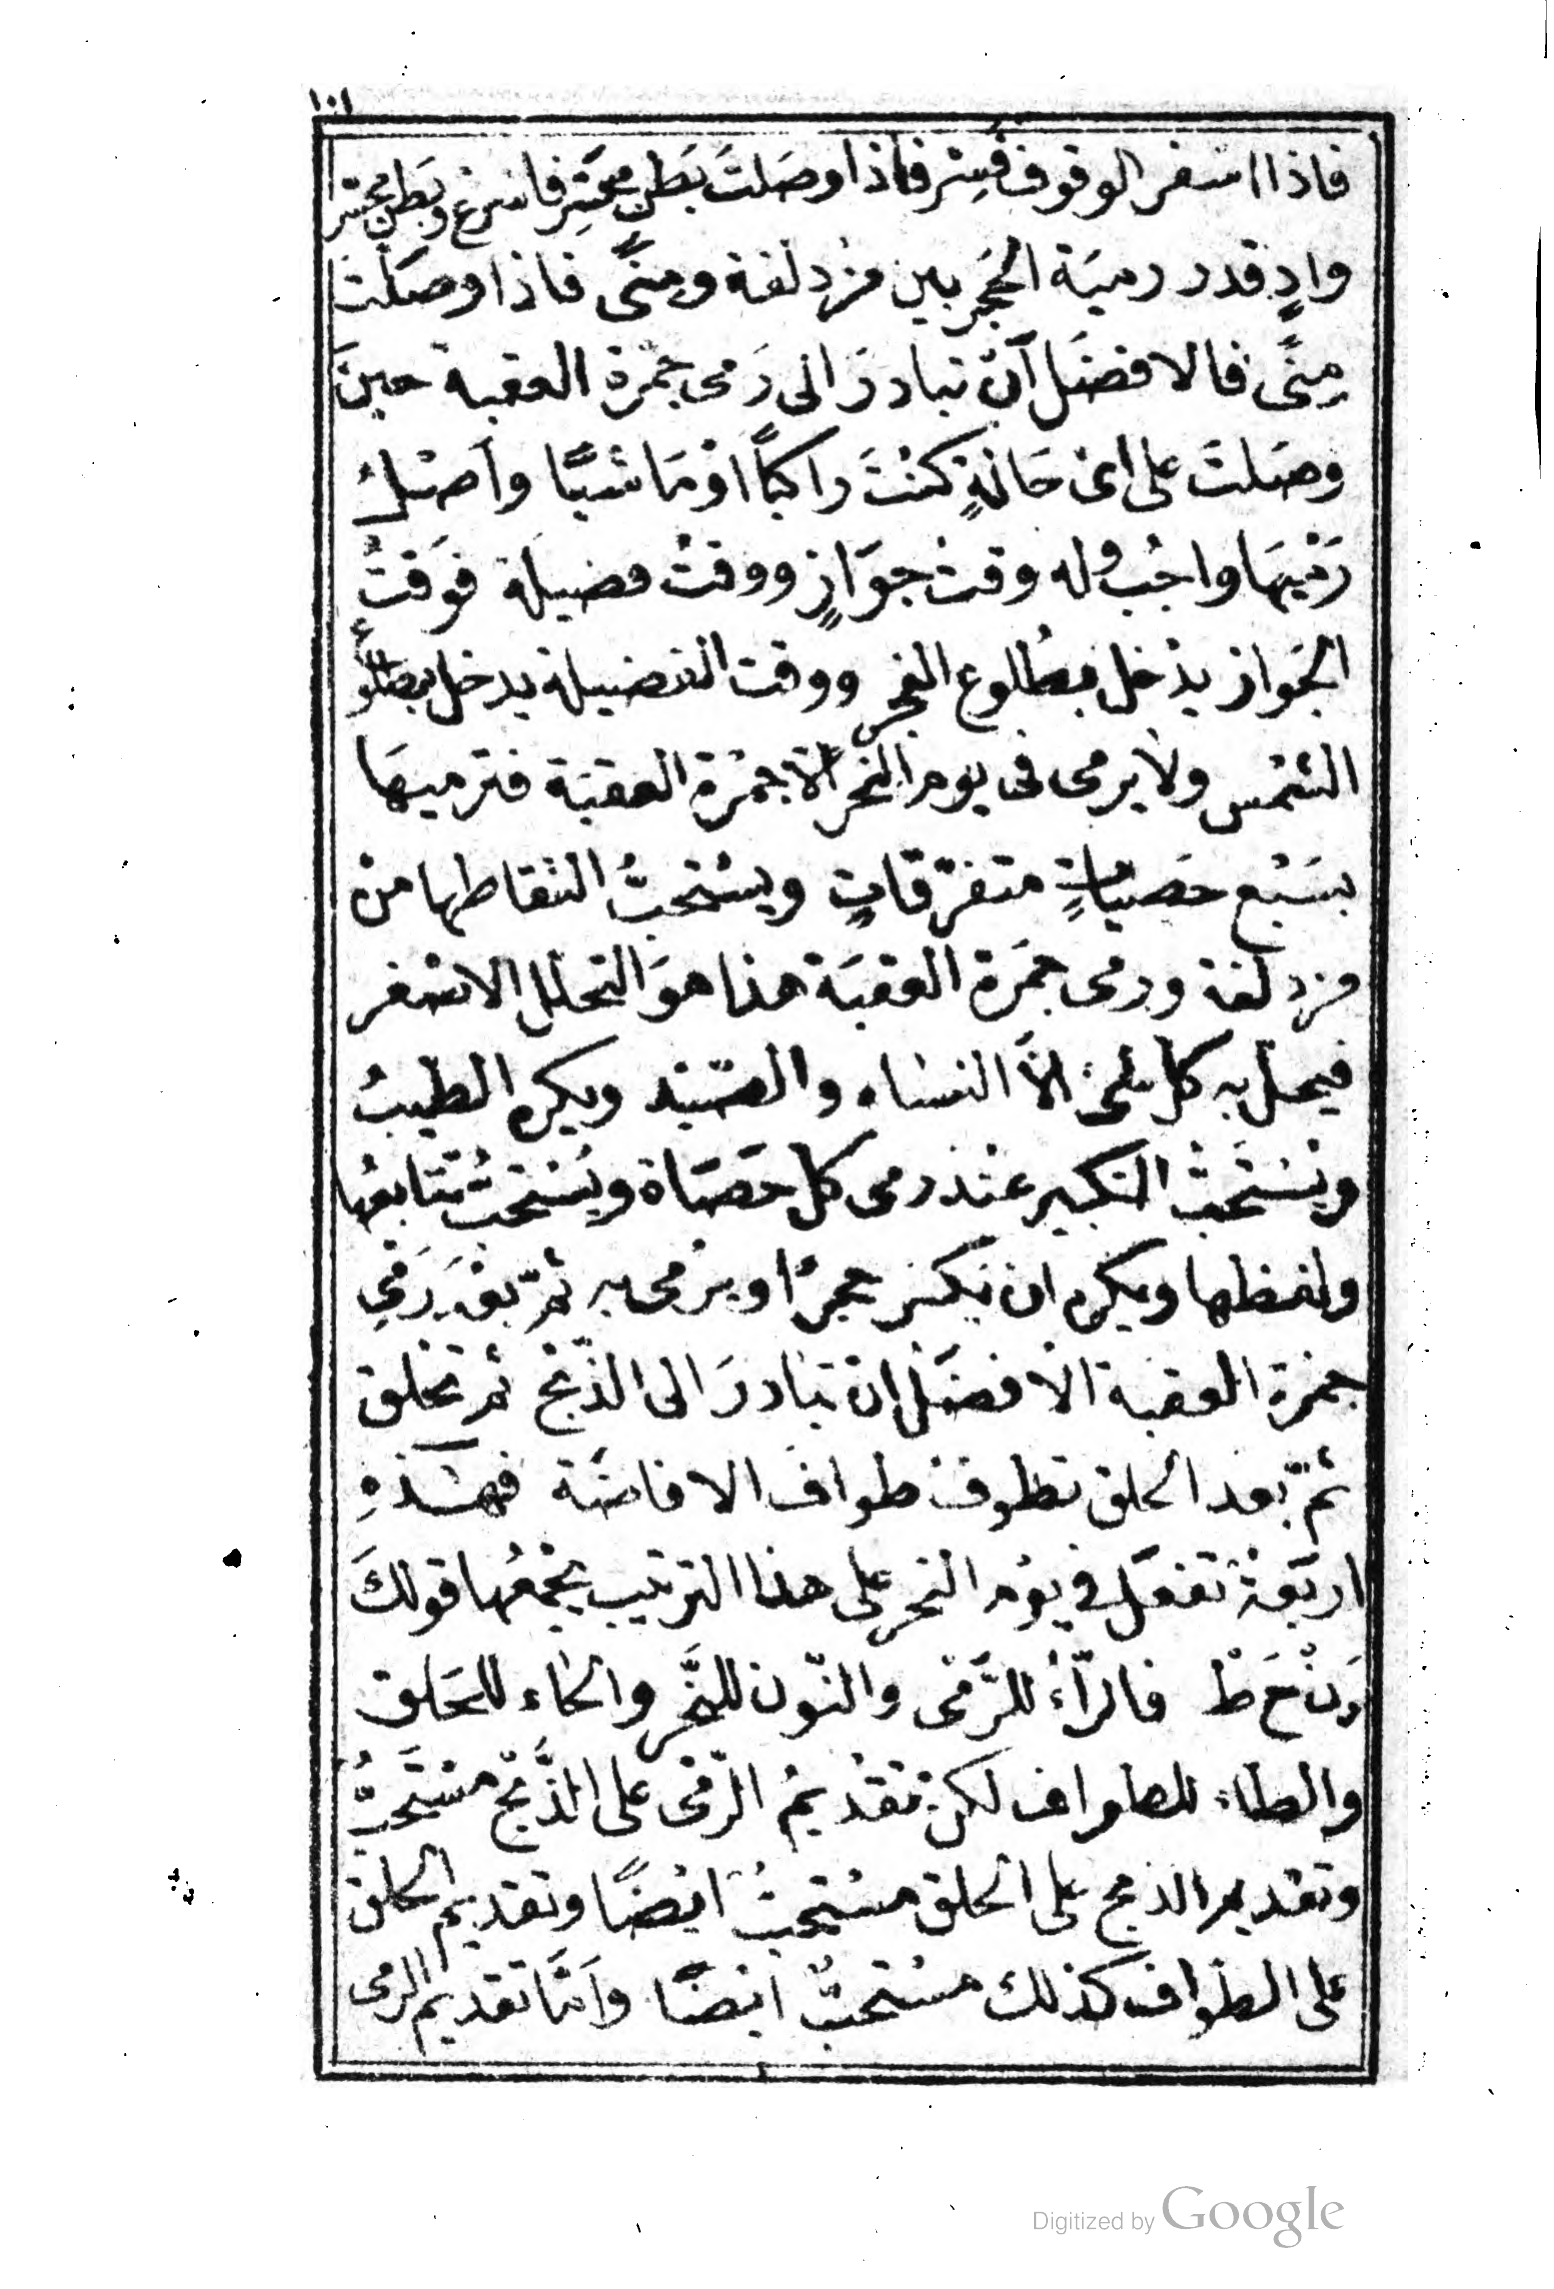 ١٠١
فاذا اسفر الوقوف فَسِر فاذا وصَلتَ بَطن محَسِّر فاسرع وبَطن محسّر
وادٍ قدر رميَة الحَجَر بين مزدلفة ومِنًى فاذا وصَلتَ
مِنًى فالافضَل اَنْ تبادرَ الى رَمى جمْرة العقبة حينَ
وصَلتَ على اىّ حَالةٍ كنْتَ راكبًا اوْ مَاشيًا واصْلُ
رَمْيهَا واجُب وله وقتُ جوَازٍ ووقتُ فضيلة فوَقتُ
الجَواز يدْخل بطُلوع الفجر ووقت الفضيلة يدخل بطلوع
الشمْس ولا يرمى فى يوم النحر الّا جمْرة العقبَة فترميهَا
بسَبْع حصَيَاتٍ متفرّقاتٍ ويسْتحبُّ التقاطها منْ
مزدلفة ورمى جمَرة العقبَة هذا هوَ التحلل الاصْغر
فيحلّ به كل شئ الّا النسَاء والصّيْد ويكره الطّيبُ
ويسْتَحبُّ التكبير عنْد رمى كل حَصَاة ويَسْتحبُّ تتابعُها
ولقطها ويكره ان يكسَر حجرًا ويرْمى به ثمّ بعْدَ رَمْىِ
جمْرة العقبة الافضَل انْ تبَادرَ الى الذّبْح ثم تحْلق
ثمّ بَعد الحلق تطوفُ طوافَ الافاضَة فهَـذهِ
اربَعةٌ تفعَل فى يوْم النحر على هذا الترتيب يجْمعُها قولكَ
رَنْحَطْ فالرّاءُ للرَّمْى والنّون للنَّحر والحَاء للحَلق
والطاء للطواف لكنْ تقْديمُ الرّمْى على الذّبْح مسْتَحبٌّ
وتقْديم الذبح على الحلق مسْتحبٌّ ايْضًا وتقديم الحلق
على الطّواف كذلك مسْتحبٌّ ايْضًا وَاَمَّا تقديم الرمى
Digitized by Google